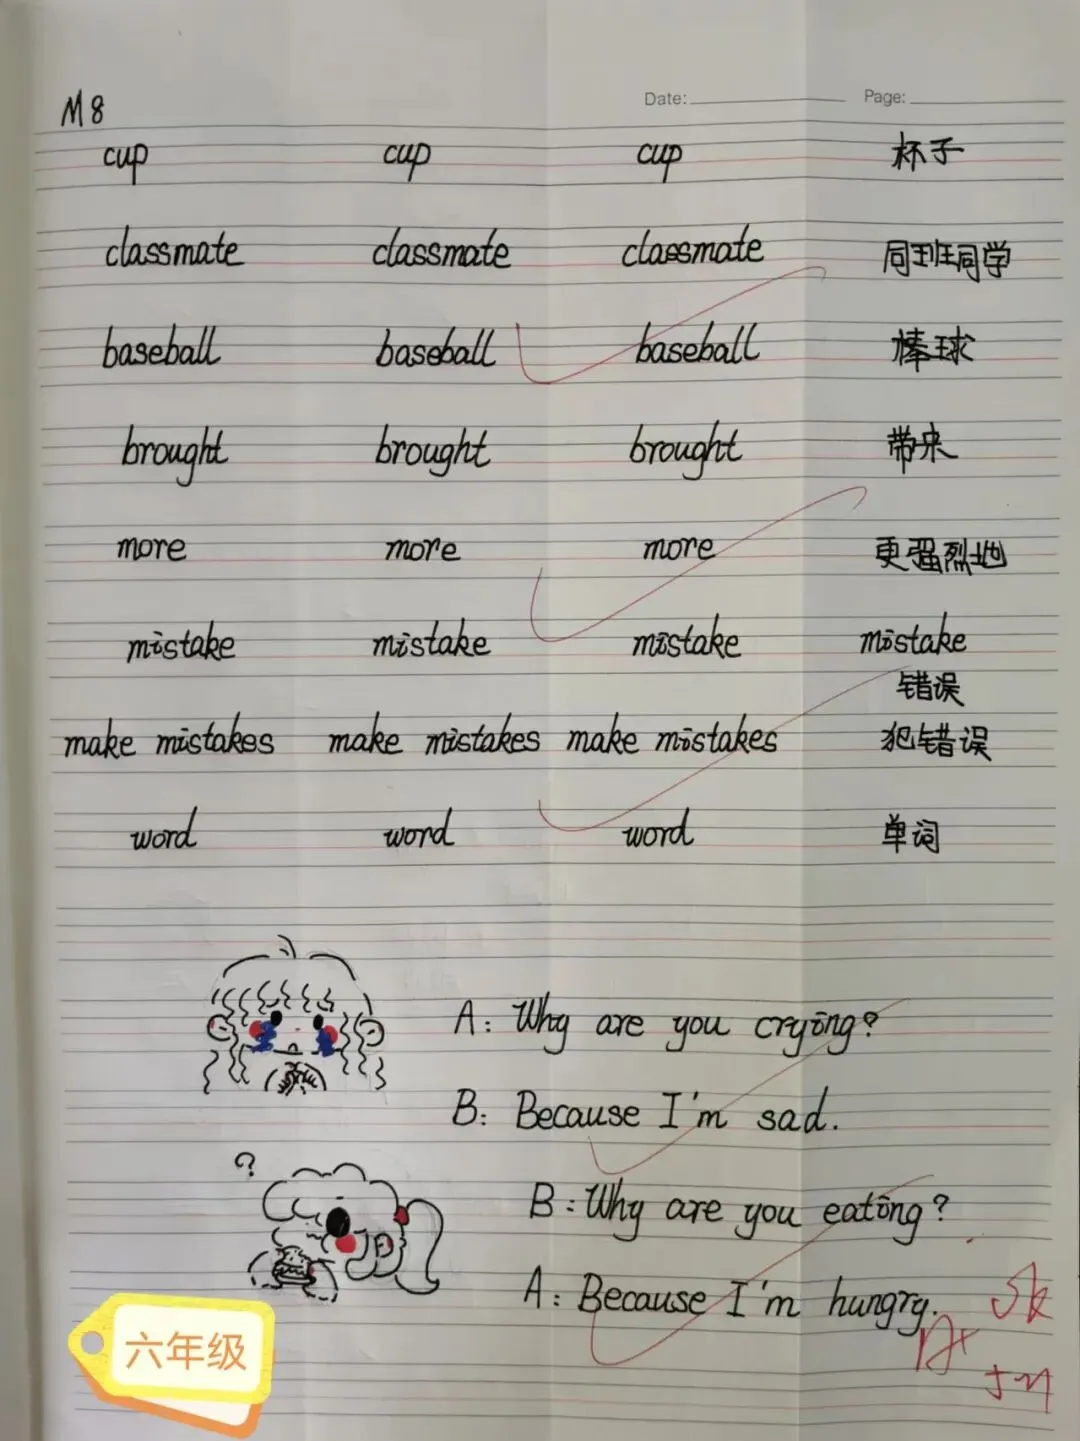 Date: Page:
M8
cup cup cup 杯子
classmate classmate classmate 同班同学
baseball baseball baseball 棒球
brought brought brought 带来
more more more 更强烈地
mistake mistake mistake mistake
错误
make mistakes make mistakes make mistakes 犯错误
word word word 单词
A: Why are you crying?
B: Because I'm sad.
?
B: Why are you eating?
A: Because I'm hungry.
A+
六年级